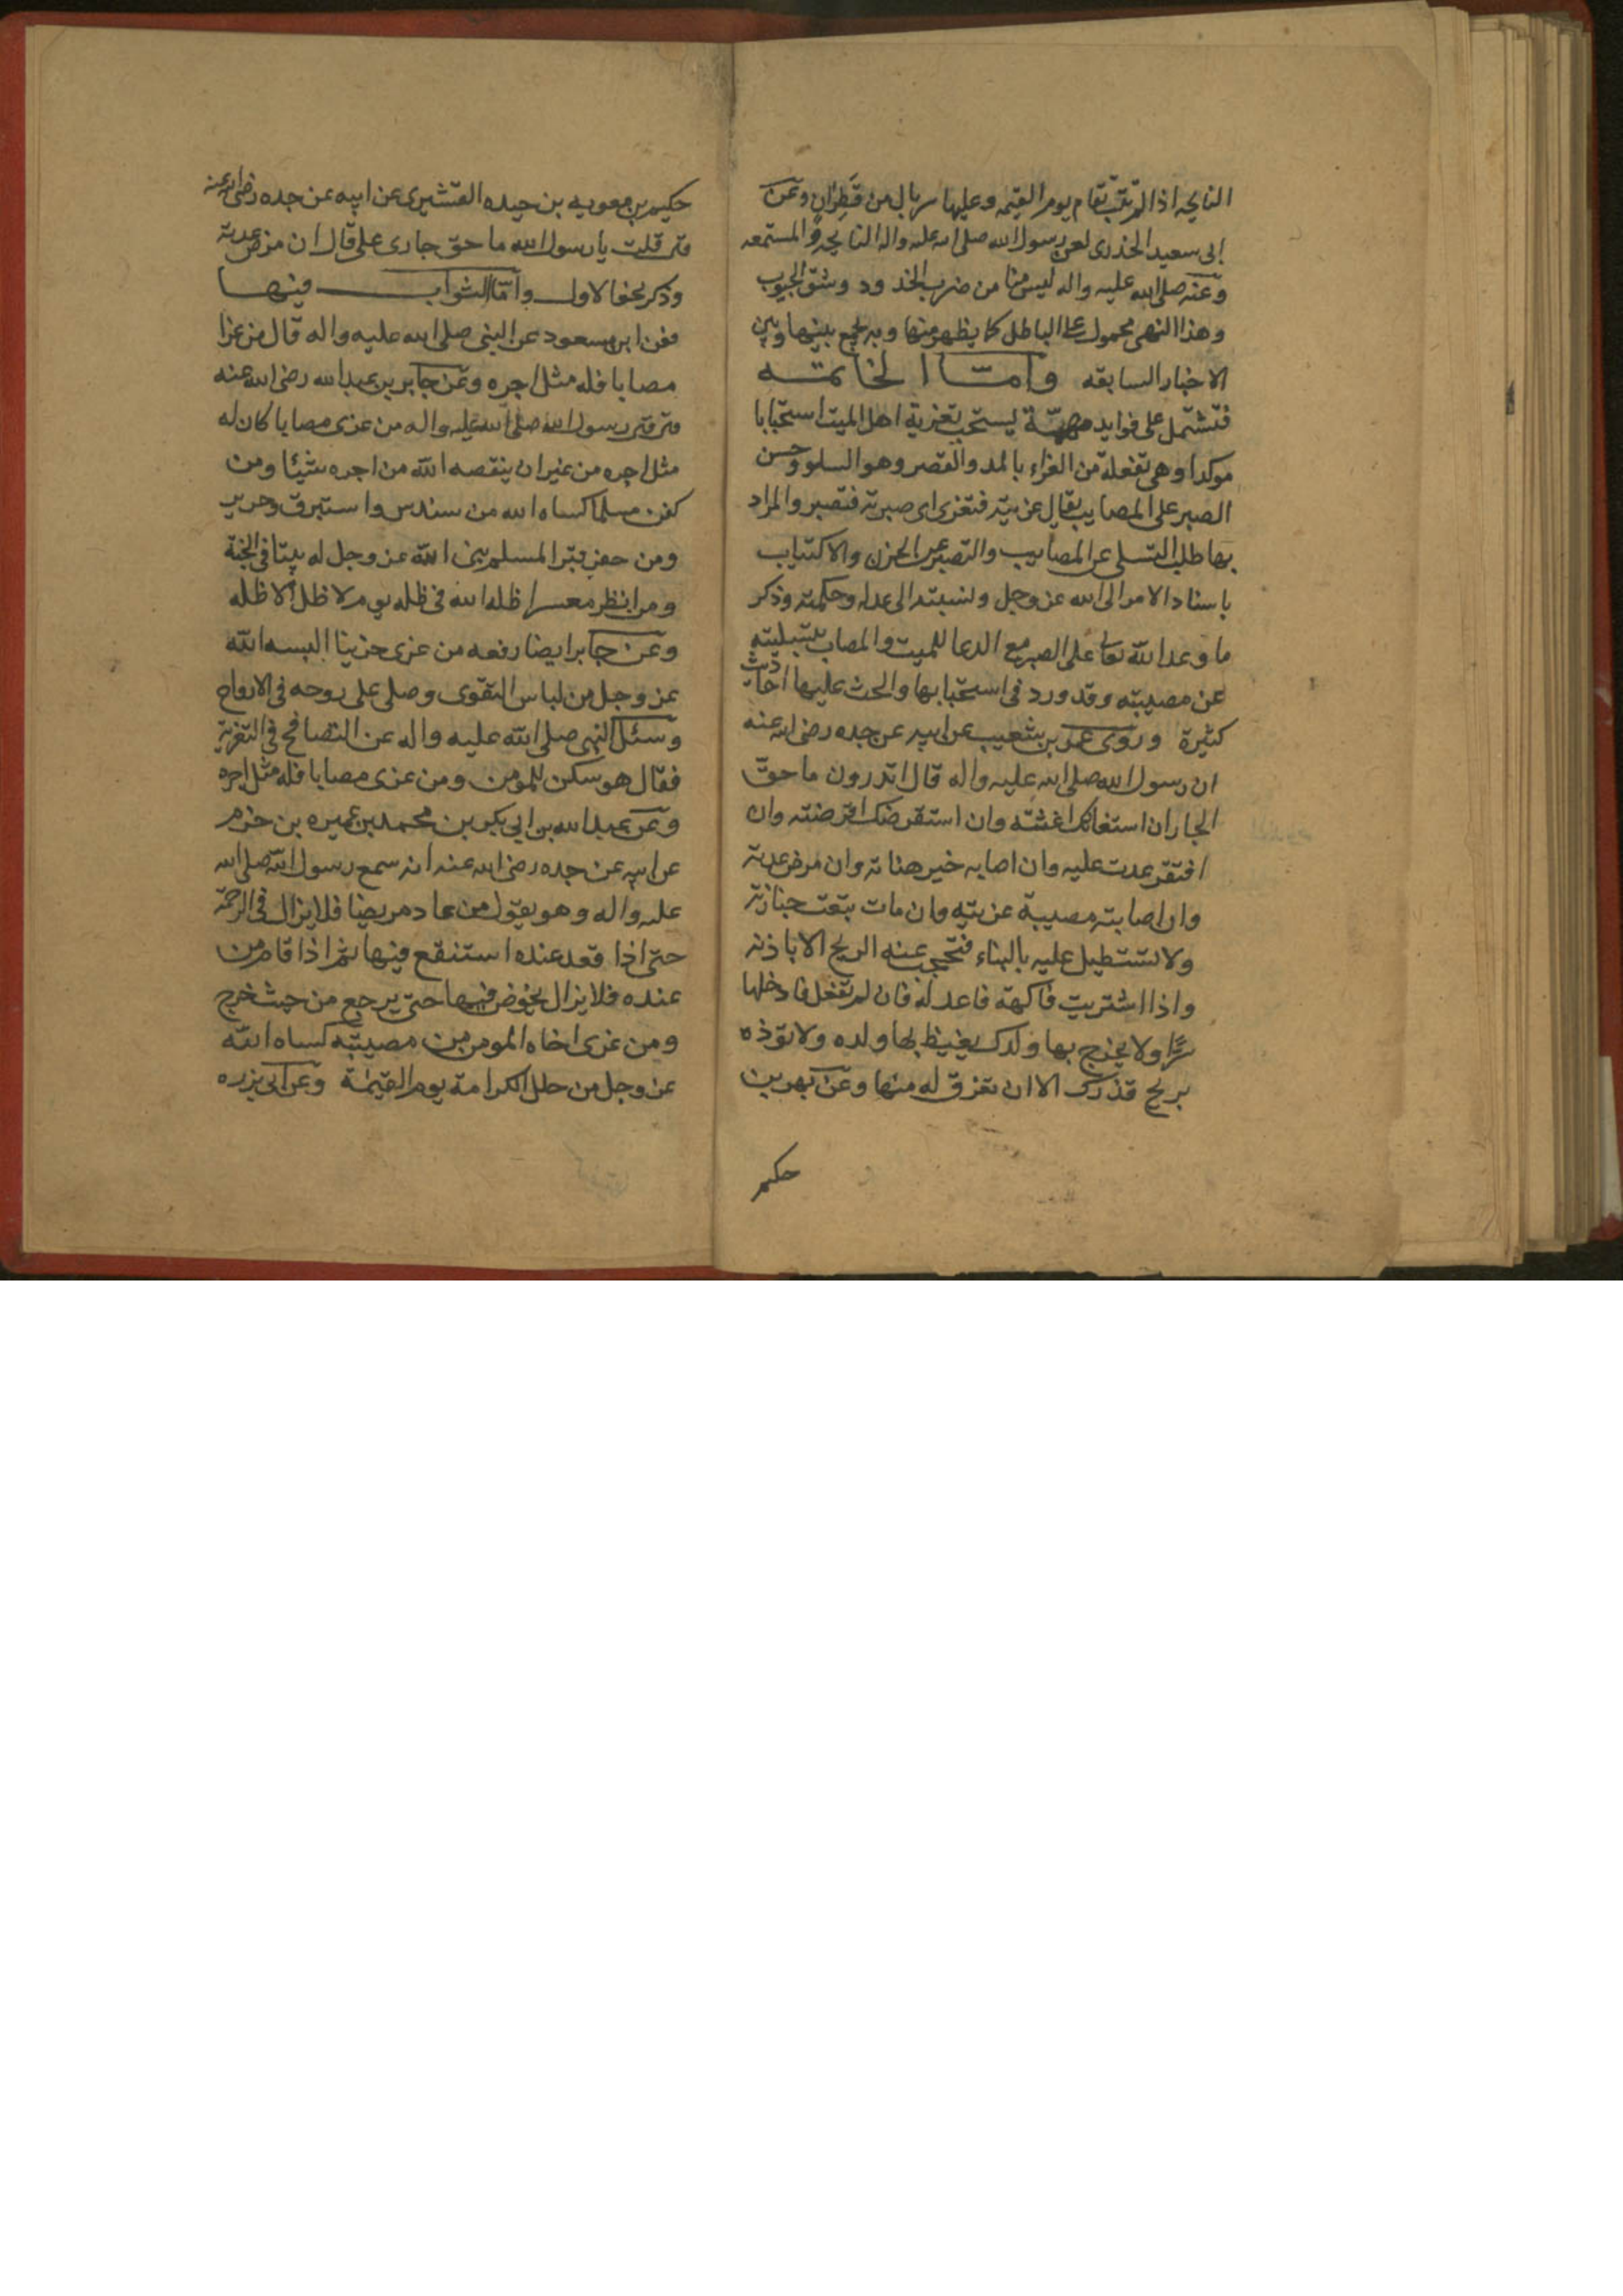 النايحه اذا لم تتب تقام يوم القيمه وعليها سربال من قَطِرَانٍ وعن
ابى سعيد الخدرى لعن رسول الله صلى الله عليه واله النايحه والمستمعه
وعنه صلى الله عليه واله ليس منا من ضرب الخدود وشق الجيوب
وهذا النهى محمول على الباطل كما يظهر منها وبه يجمع بينها وبين
الاخبار السابقه وامّا الخاتمه
فتشتمل على فوايد مهمّة يستحب تعزية اهل الميت استحبابا
موكدا وهى تفعلة من العزاء بالمد والقصر وهو السلو وحسن
الصبر على المصايب يقال عزيته فتعزى اى صبرته فتصبر والمراد
بها طلب التسلى عن المصايب والتصبر عن الحزن والاكتياب
باسناد الامر الى الله عز وجل ونسبته الى عدله وحكمته وذكر
ما وعد الله تعالى على الصبر مع الدعا للميت والمصاب بتسليته
عن مصيبته وقد ورد فى استحبابها والحث عليها احاديث
كثيرة وروى عمرو بن شعيب عن ابيه عن جده رضى الله عنه
ان رسول الله صلى الله عليه واله قال اتدرون ما حقّ
الجار ان استغاثك اغثته وان استقرضك اقرضته وان
افتقر عدت عليه وان اصابه خير هناته وان مرض عدته
وان اصابته مصيبة عزيته وان مات تبعت جنازته
ولا تستطيل عليه بالبناء فتحجب عنه الريح الا باذنه
واذا اشتريت فاكهة فاهد له فان لم تفعل فادخلها
سرًّا ولا يخرج بها ولدك يغيظ بها ولده ولا توذه
بريح قدرك الا ان تغرف له منها وعن بهز بن
حكيم
حكيم بن معويه بن حيده القشيرى عن ابيه عن جده رضى الله عنه
قال قلت يا رسول الله ما حق جارى على قال ان مرض عدته
وذكر نحو الاول وامّا الثواب فيها
فعن ابن مسعود عن النبى صلى الله عليه واله قال من عزا
مصابا فله مثل اجره وعن جابر بن عبد الله رضى الله عنه
قال قال رسول الله صلى الله عليه واله من عزى مصابا كان له
مثل اجره من غير ان ينقصه الله من اجره شيئا ومن
كفن مسلما كساه الله من سندس واستبرق وحرير
ومن حفر قبرا لمسلم بنى الله عز وجل له بيتا فى الجنة
ومن انظر معسرا ظله الله فى ظله يوم لا ظل الا ظله
وعن جابر ايضا رفعه من عزى حزينا البسه الله
عز وجل من لباس التقوى وصلى على روحه فى الارواح
وسئل النبى صلى الله عليه واله عن التصافح فى التعزية
فقال هو سكن للمومن ومن عزى مصابا فله مثل اجره
وعن عبد الله بن ابى بكر بن محمد بن عميره بن حزم
عن ابيه عن جده رضى الله عنه انه سمع رسول الله صلى الله
عليه واله وهو يقول من عاد مريضا فلا يزال فى الرحمة
حتى اذا قعد عنده استنقع فيها ثم اذا قام من
عنده فلا يزال يخوض فيها حتى يرجع من حيث خرج
ومن عزى اخاه المومن من مصيبته كساه الله
عز وجل من حلل الكرامة يوم القيمة وعن ابى برزه